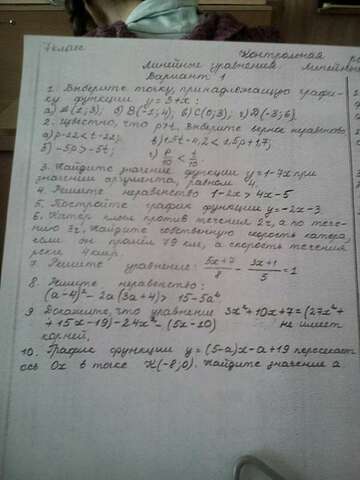 7 класс
Контрольная ра
Линейные уравнения. Линейны
Вариант 1
1. Выберите точку, принадлежащую графи-
ку функции y=3+x:
а) А(2;3); б) В(-1;4); в) С(0;3); г) D(-3;6).
2. Известно, что p>t. Выберите верное неравенство
а) p-22<t-22; в) 1,5t-4,2<1,5p+1,7;
б) -5p>-5t; г) p/10 < t/10.
3. Найдите значение функции y=1-7x при
значении аргумента, равном 4.
4. Решите неравенство 1-2x>4x-5
5. Постройте график функции y=-2x-3.
6. Катер плыл против течения 2ч, а по тече-
нию 3ч. Найдите собственную скорость катера,
если он проплыл 79 км, а скорость течения
реки 4 км/ч.
7. Решите уравнение: (5x+7)/8 - (3x+1)/5 = 1
8. Решите неравенство:
(a-4)²-2a(3a+4)>15-5a²
9. Докажите, что уравнение 3x²+10x+7=(27x²+
+15x-19)-24x²-(5x-10) не имеет
корней.
10. График функции y=(5-a)x-a+19 пересекает
ось Ox в точке K(-8;0). Найдите значение a